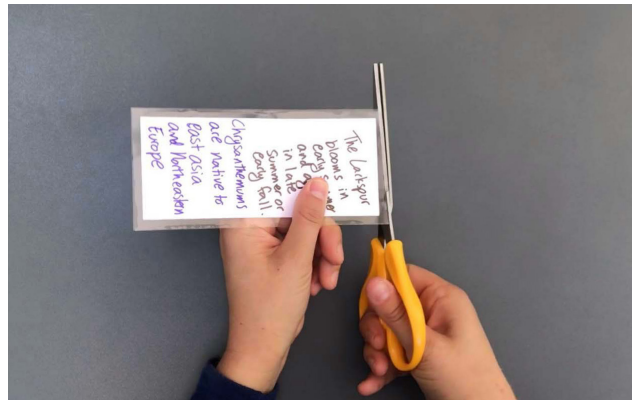 The Larkspur
blooms in
eary
and
in late
summer or
eary fall.
Chrysanthemums
are native to
east asia
and Northeastern
Europe